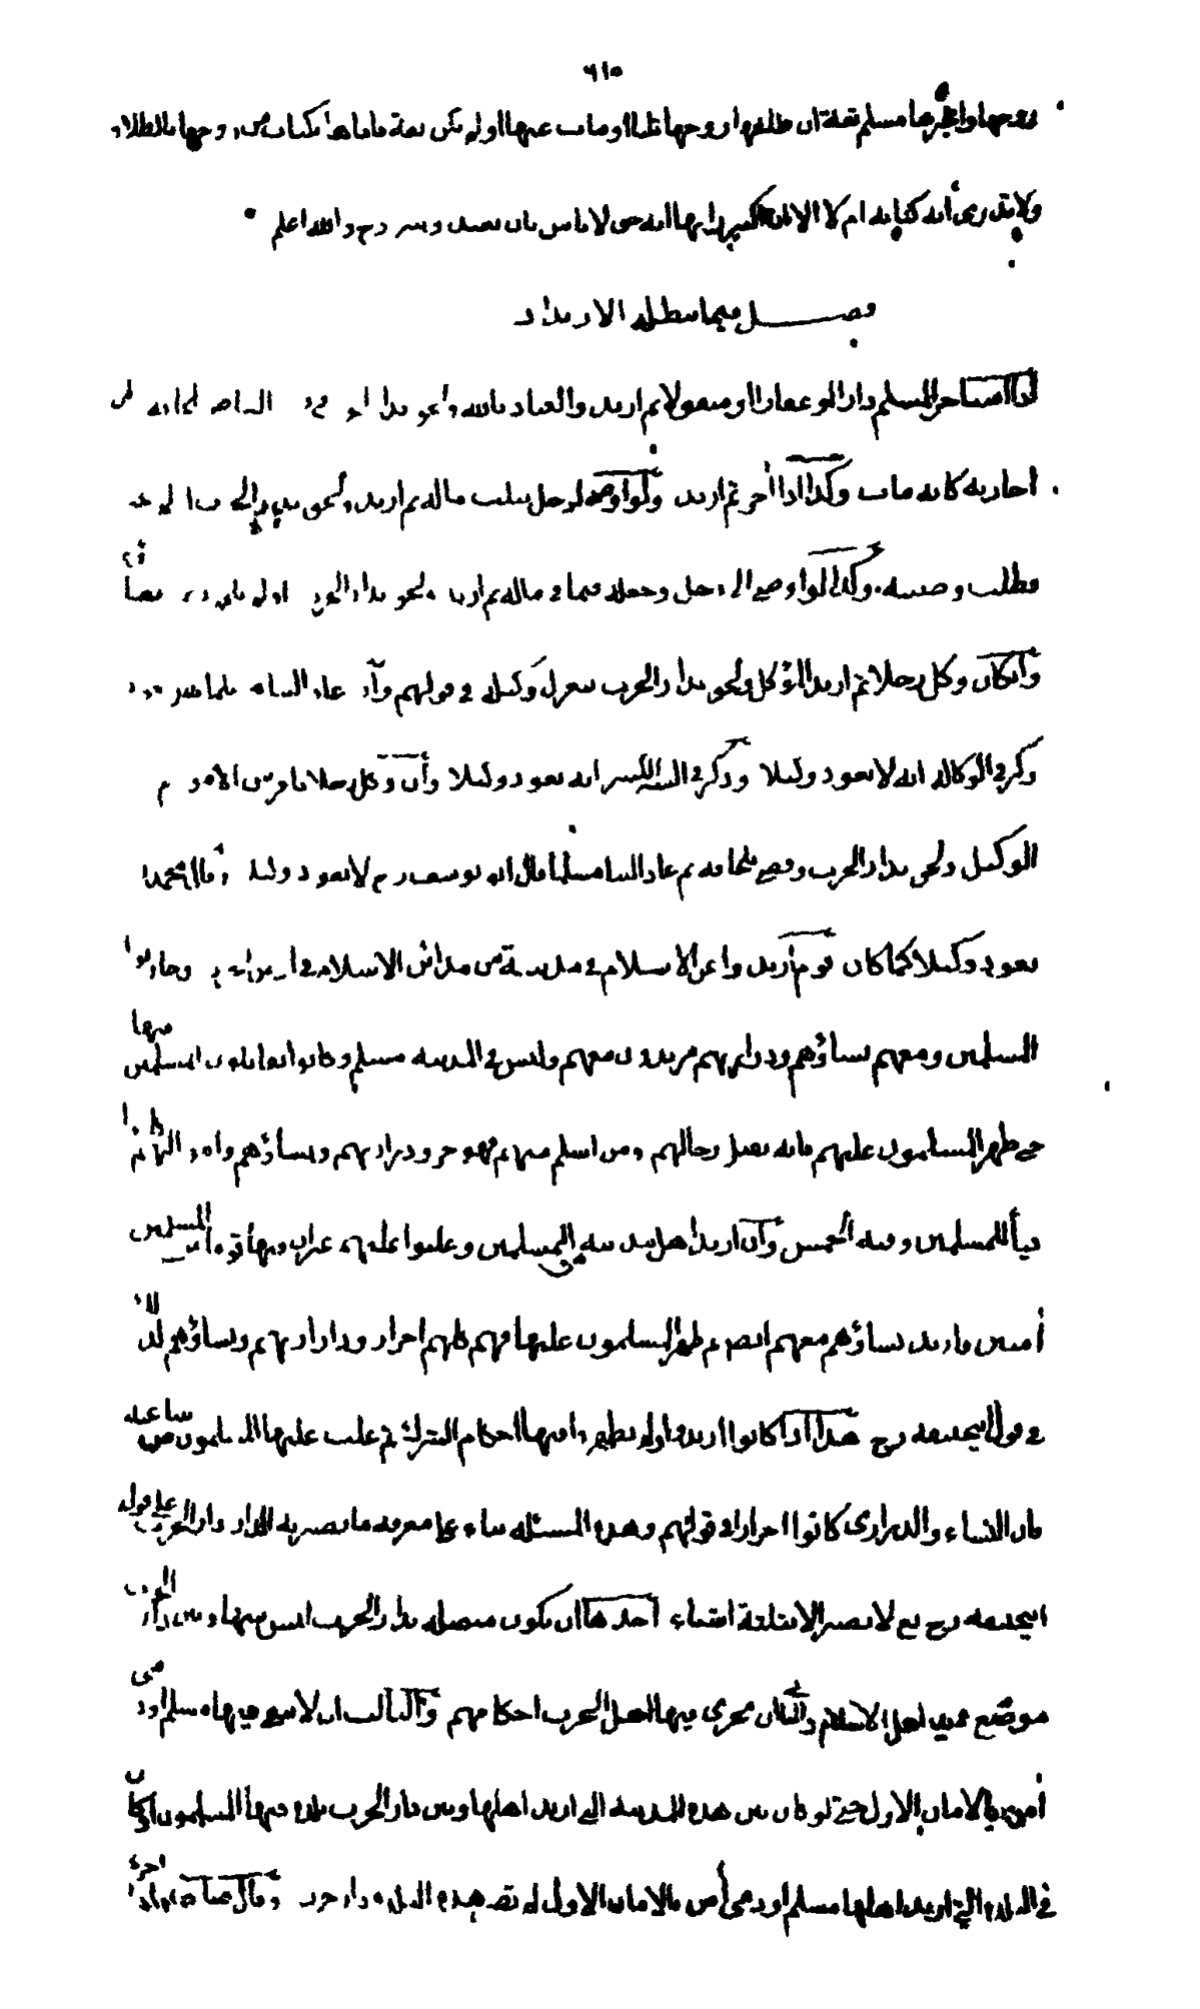 ٦١٥
زوجها واخبرها مسلم ثقة ان طلقها زوجها ثلثا او مات عنها او لم يكن ثقة فاتاها بكتاب من زوجها بالطلاق
ولا يدرى أنه كتابه ام لا الا ان اكبر رايها انه حق لا باس بان تعتد وتتزوج والله اعلم
فصل فيما يبطله الارتداد
اذا استاجر المسلم دارا او عقارا او منقولا ثم ارتد والعياذ بالله ولحق بدار
اجارته كانه مات وكذا اذا آجر ثم ارتد ولو اوصى لرجل بثلث ماله ثم ارتد ولحق بدار الحرب او لم يلحق
تبطل وصيته وكذا لو اوصى الى رجل وجعله قيما في ماله ثم ارتد ولحق بدار الحرب او لم يلحق
وان كان وكل رجلا ثم ارتد الموكل ولحق بدار الحرب ينعزل وكيله في قولهم وان عاد الينا مسلما
ذكر في الوكالة انه لا يعود وكيلا وذكر في السير الكبير انه يعود وكيلا وان وكل رجلا بامر من الامور ثم
الوكيل ولحق بدار الحرب وقضى بلحاقه ثم عاد الينا مسلما قال ابو يوسف رح لا يعود وكيلا وقال محمد
يعود وكيلا كما كان قوم ارتدوا عن الاسلام في مدينة من مدائن الاسلام في وحاربوا
المسلمين ومعهم نساؤهم وذراريهم مرتدون معهم وليس في المدينة مسلم وكانوا يقاتلون المسلمين منها
حتى ظهر المسلمون عليهم فانه يقتل رجالهم ومن اسلم منهم فهو حر وذراريهم ونساؤهم واموالهم
فيأ للمسلمين وفيه الخمس وان ارتد اهل مدينة المسلمين وغلبوا عليها غير ان فيها قوما من المسلمين
آمنين فارتد نساؤهم معهم ايضا ثم ظهر المسلمون عليها فهم كلهم احرار وذراريهم ونساؤهم
في قول ابي حنيفة رح هذا اذا كانوا ارتدوا ولم يظهروا فيها احكام الشرك ثم غلب عليها المسلمون من ساعته
فان النساء والذرارى كانوا احرارا في قولهم وهذه المسئلة بناء على معرفة ما تصير به الدار دار الحرب على قول
ابي حنيفة رح لا تصير الا بثلثة اشياء احدها ان تكون متصلة بدار الحرب ليس بينها وبين دار الحرب
موضع في يد اهل الاسلام والثاني ان يجرى فيها اهل الحرب احكامهم والثالث ان لا يبقى فيها مسلم او ذمى
آمن بالامان الاول حتى لو كان بين هذه المدينة التي ارتد اهلها وبين دار الحرب بلدة فيها المسلمون او كان
في البلدة التي ارتد اهلها مسلم او ذمى آمن بالامان الاول لم تصر هذه البلدة دار حرب وقال صاحباه اذا اجرى